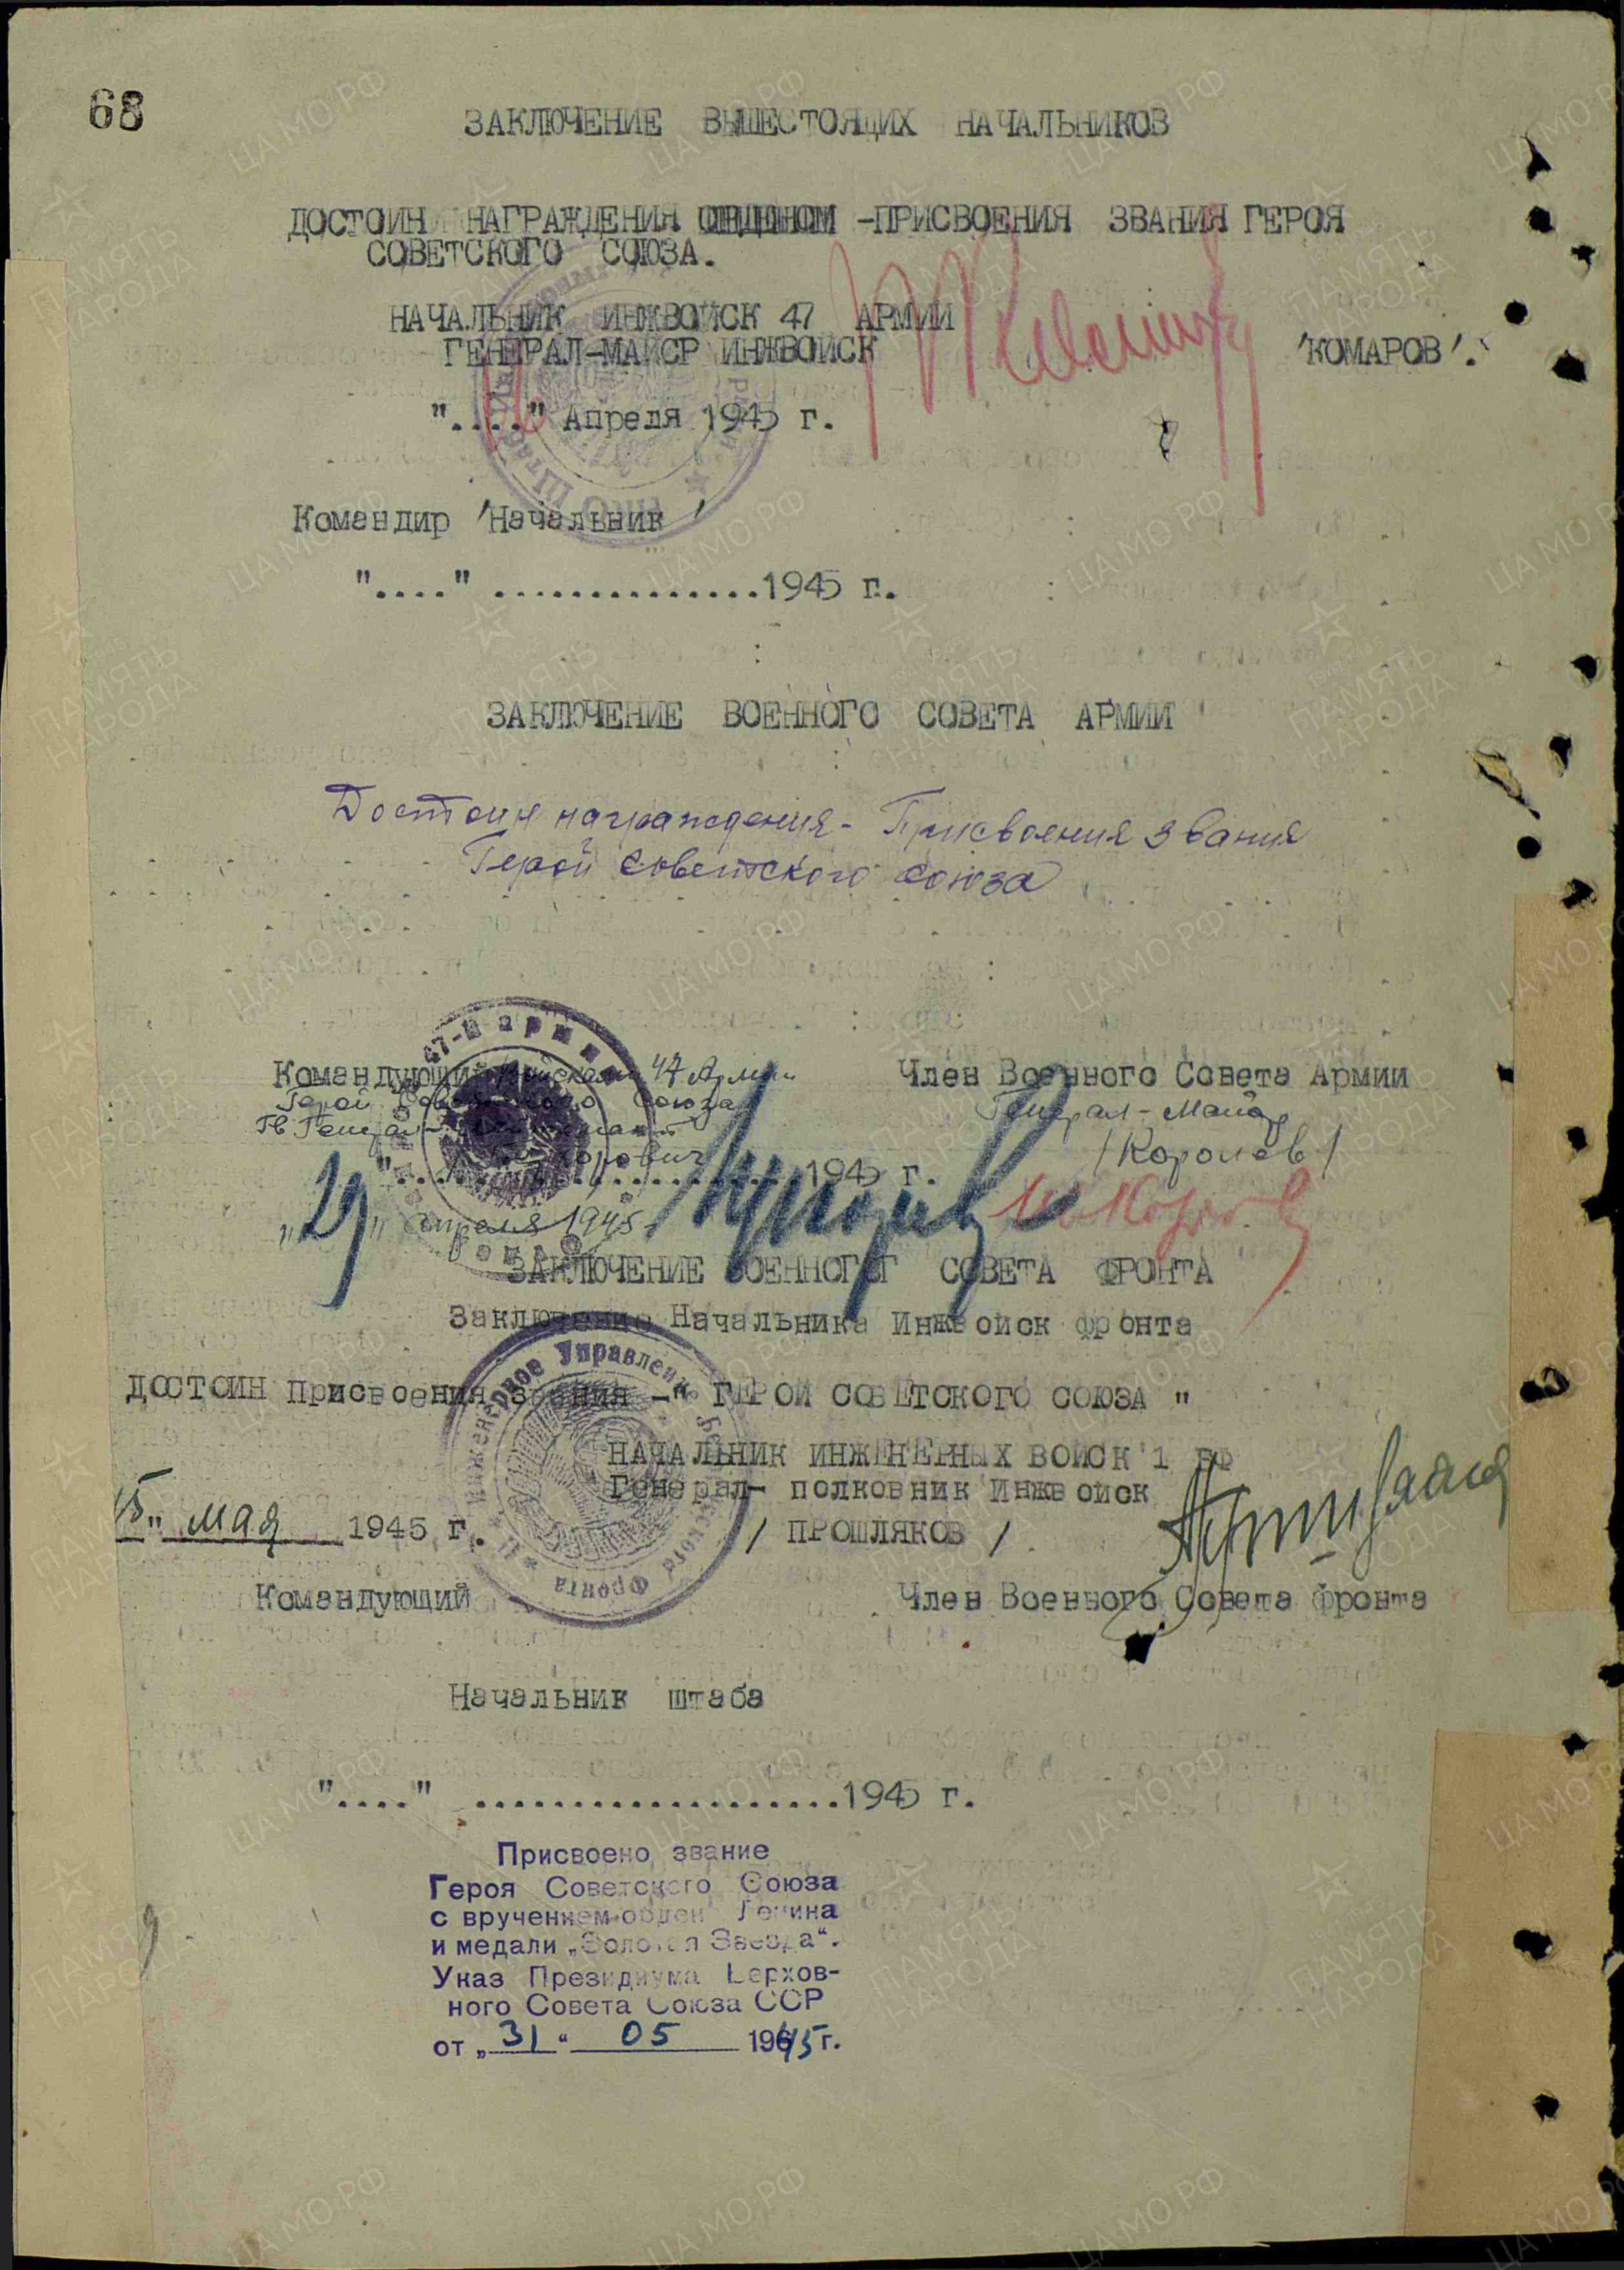 68
ЗАКЛЮЧЕНИЕ ВЫШЕСТОЯЩИХ НАЧАЛЬНИКОВ
ДОСТОИН НАГРАЖДЕНИЯ -ПРИСВОЕНИЯ ЗВАНИЯ ГЕРОЯ
СОВЕТСКОГО СОЮЗА.
НАЧАЛЬНИК ИНЖВОЙСК 47 АРМИИ
ГЕНЕРАЛ-МАЙОР ИНЖВОЙСК 'КОМАРОВ'.
"...." Апреля 1945 г.
Командир 'Начальник'
"...." ...............1945 г.
ЗАКЛЮЧЕНИЕ ВОЕННОГО СОВЕТА АРМИИ
Достоин награждения - Присвоения звания
Герой Советского Союза
47-й армии
Командующий Войсками 47 Армии Член Военного Совета Армии
Герой Советского Союза Генерал-Майор
Гв Генерал- /Королев/
1945 г.
"29" апреля 1945
ЗАКЛЮЧЕНИЕ ВОЕННОГОГ СОВЕТА ФРОНТА
Заключение Начальника Инжвойск фронта
ДОСТОИН Присвоения звания -" ГЕРОЙ СОВЕТСКОГО СОЮЗА "
НАЧАЛЬНИК ИНЖЕНЕРНЫХ ВОЙСК 1 БФ
Генерал- полковник Инжвойск
15" мая 1945 г. / ПРОШЛЯКОВ /
Инженерное Управление фронта
Командующий Член Военного Совета Фронта
Начальник штаба
"...." ...................1945 г.
Присвоено звание
Героя Советского Союза
с вручением орден Ленина
и медали „Золотая Звезда“.
Указ Президиума Верхов-
ного Совета Союза ССР
от „31“ 05 1945 г.
ЦА МО РФ
ПАМЯТЬ
НАРОДА